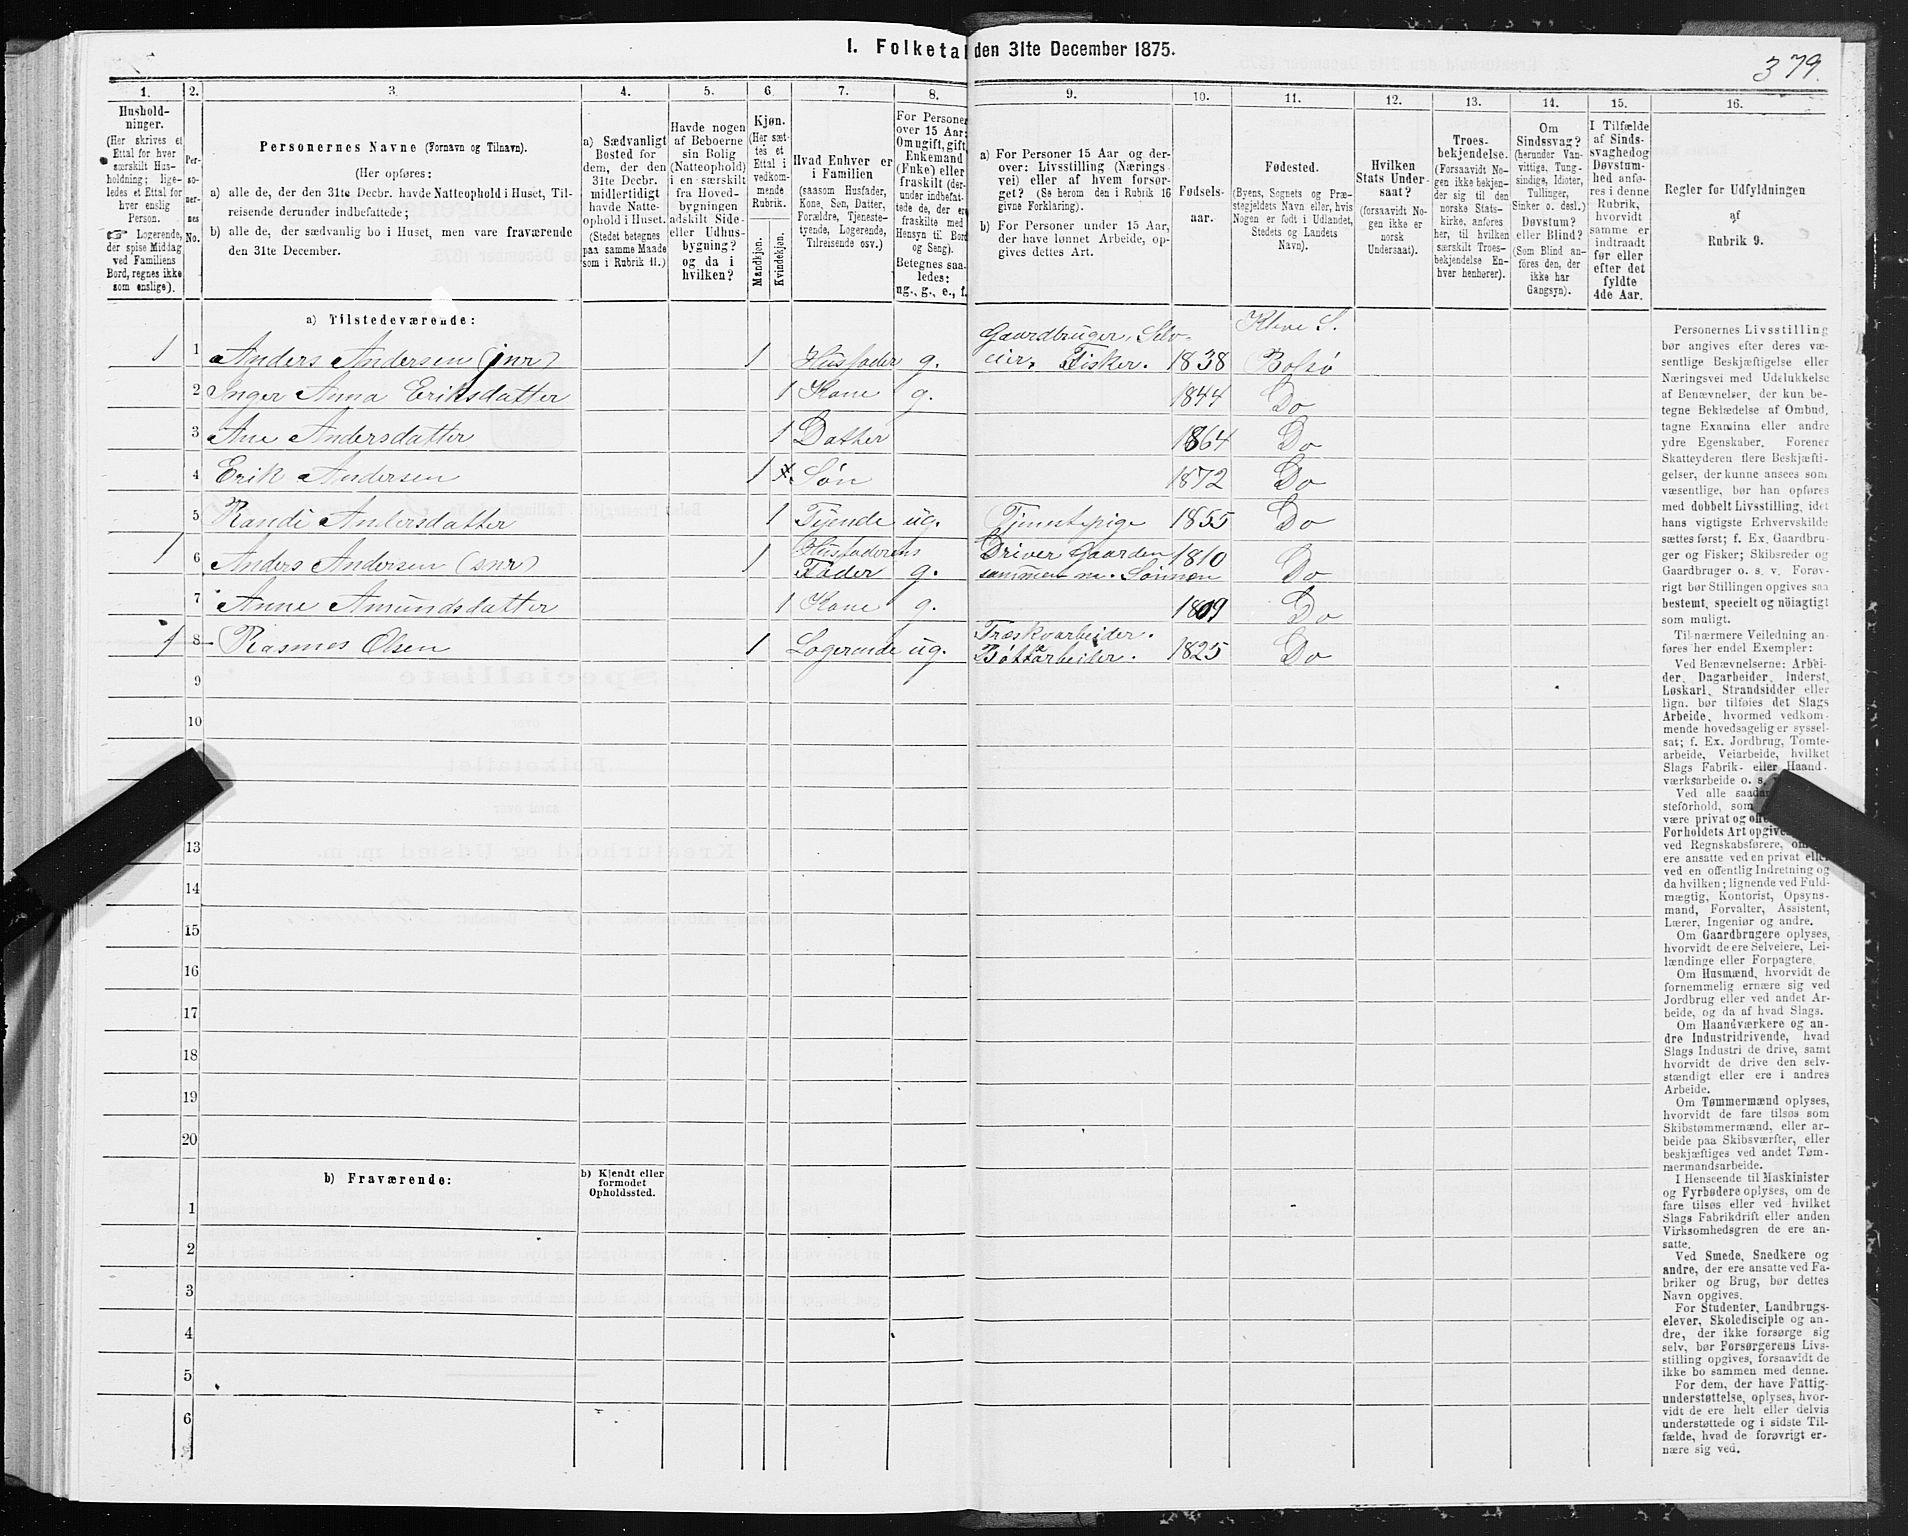 I. Folketal den 31te December 1875.
379.
1. 2. 3. 4. 5. 6. 7. 8. 9. 10. 11. 12. 13. 14. 15. 16.
Hushold-
ninger.
(Her skrives et
Ettal for hver
særskilt Hus-
holdning; lige-
ledes et Ettal for
hver enslig
Person.
☞ Logerende,
der spise Middag
ved Familiens
Bord, regnes ikke
som enslige).
Per-
so-
ner-
nes
No.
Personernes Navne (Fornavn og Tilnavn).
(Her opføres:
a) alle de, der den 31te Decbr. havde Natteophold i Huset, Til-
reisende derunder indbefattede;
b) alle de, der sædvanlig bo i Huset, men vare fraværende
den 31te December.
a) Sædvanligt
Bosted for
dem, der den
31te Decbr.
midlertidigt
havde Natte-
ophold i Huset.
(Stedet betegnes
paa samme Maade
som i Rubrik 11.)
Havde nogen
af Beboerne
sin Bolig
(Natteophold)
i en særskilt
fra Hoved-
bygningen
adskilt Side-
eller Udhus-
bygning?
og da i
hvilken?
Kjøn.
(Her sæt-
tes et
Ettal i
vedkom-
mende
Rubrik.
Mandkjøn.
Kvindekjøn.
Hvad Enhver er
i Familien
(saasom Husfader,
Kone, Søn, Datter,
Forældre, Tjeneste-
tyende, Logerende,
Tilreisende osv.)
For Personer
over 15 Aar:
Om ugift, gift,
Enkemand
(Enke) eller
fraskilt (der-
under indbefat-
tede de, der ere
fraskilte med
Hensyn til Bord
og Seng).
Betegnes saa-
ledes:
ug., g., e., f.
a) For Personer 15 Aar og der-
over: Livsstilling (Nærings-
vei) eller af hvem forsør-
get? (Se herom den i Rubrik 16
givne Forklaring).
b) For Personer under 15 Aar,
der have lønnet Arbeide, op-
gives dettes Art.
Fødsels-
aar.
Fødested.
(Byens, Sognets og Præ-
stegjeldets Navn eller, hvis
Nogen er født i Udlandet,
Stedets og Landets
Navn).
Hvilken
Stats Under-
saat?
(forsaavidt No-
gen ikke er
norsk
Undersaat).
Troes-
bekjendelse.
(Forsaavidt No-
gen ikke bekjen-
der sig til den
norske Stats-
kirke, anføres
her, til hvilken
særskilt Troes-
bekjendelse En-
hver henhører).
Om
Sindssvag?
(herunder Van-
vittige, Tung-
sindige, Idioter,
Tullinger,
Sinker o. desl.)
Døvstum?
eller Blind?
(Som Blind an-
føres den, der
ikke har
Gangsyn).
I Tilfælde
af Sinds-
svaghed og
Døvstum-
hed anfø-
res i denne
Rubrik,
hvorvidt
samme er
indtraadt
før eller
efter det
fyldte
4de Aar.
Regler for Udfyldningen
af
Rubrik 9.
a) Tilstedeværende:
1 1 Anders Andersen (jnr) 1 Husfader g. Gaardbruger, Selv-
eier, Fisker. 1838 Kleve S.
Bolsø
2 Inger Anna Eriksdatter 1 Kone g. 1844 Do
3 Ane Andersdatter 1 Datter 1864 Do
4 Erik Andersen 1 Søn 1872 Do
5 Randi Andersdatter 1 Tyende ug. Tjenestepige 1855 Do
1 6 Anders Andersen (snr) 1 Husfaderens
Fader g. Driver Gaarden
sammen m. Sønnen 1810 Do
7 Anne Amundsdatter 1 Kone g. 1809 Do
1 8 Rasmus Olsen 1 Logerende ug. Træskoarbeider.
Bøttearbeider. 1825 Do
9
10
13
14
15
16
17
18
19
20
b) Fraværende:
b) Kjendt eller
formodet
Opholdssted.
1
2
3
4
5
6
Personernes Livsstilling
bør angives efter deres væ-
sentlige Beskjæftigelse eller
Næringsvei med Udelukkelse
af Benævnelser, der kun be-
tegne Beklædelse af Ombud,
tagne Examina eller andre
ydre Egenskaber. Forener
Skatteyderen flere Beskjæfti-
gelser, der kunne ansees som
væsentlige, bør han opføres
med dobbelt Livsstilling, idet
hans vigtigste Erhvervskilde
sættes først; f. Ex. Gaardbru-
ger og Fisker; Skibsreder og
Gaardbruger o. s. v. Forøv-
rigt bør Stillingen opgives saa
bestemt, specielt og nøiagtigt
som muligt.
Til nærmere Veiledning an-
føres her endel Exempler:
Ved Benævnelserne: Arbei-
der, Dagarbeider, Inderst,
Løskarl, Strandsidder eller
lign. bør tilføies det Slags
Arbeide, hvormed vedkom-
mende hovedsagelig er syssel-
sat; f. Ex. Jordbrug, Tomte-
arbeide, Veiarbeide, hvilket
Slags Fabrik- eller Haand-
værksarbeide o. s.
Ved alle
steforhold, som
være privat og
Forholdets Art
ved Regnskabsførere,
ere ansatte ved en privat eller
ved en offentlig Indretning og
da hvilken; lignende ved Fuld-
mægtig, Kontorist, Opsyns-
mand, Forvalter, Assistent,
Lærer, Ingeniør og andre.
Om Gaardbrugere oplyses,
hvorvidt de ere Selveiere, Lei-
lændinge eller Forpagtere.
Om Husmænd, hvorvidt de
fornemmelig ernære sig ved
Jordbrug eller ved andet Ar-
beide, og da af hvad Slags.
Om Haandværkere og an-
dre Industridrivende, hvad
Slags Industri de drive, samt
hvorvidt de drive den selv-
stændigt eller ere i andres
Arbeide.
Om Tømmermænd oplyses,
hvorvidt de fare tilsøs som
Skibstømmermænd, eller ar-
beide paa Skibsværfter, eller
beskjæftiges ved andet Tøm-
mermandsarbeide.
I Henseende til Maskinister
og Fyrbødere oplyses, om de
fare tilsøs eller ved hvilket
Slags Fabrikdrift eller anden
Virksomhedsgren de ere an-
satte.
Ved Smede, Snedkere og
andre, der ere ansatte ved Fa-
briker og Brug, bør dettes
Navn opgives.
For Studenter, Landbrugs-
elever, Skoledisciple og an-
dre, der ikke forsørge sig
selv, bør Forsørgerens Livs-
stilling opgives, forsaavidt de
ikke bo sammen med denne.
For dem, der have Fattig-
understøttelse, oplyses, hvor-
vidt de ere helt eller delvis
understøttede og i sidste Til-
fælde, hvad de forøvrigt er-
nære sig ved.